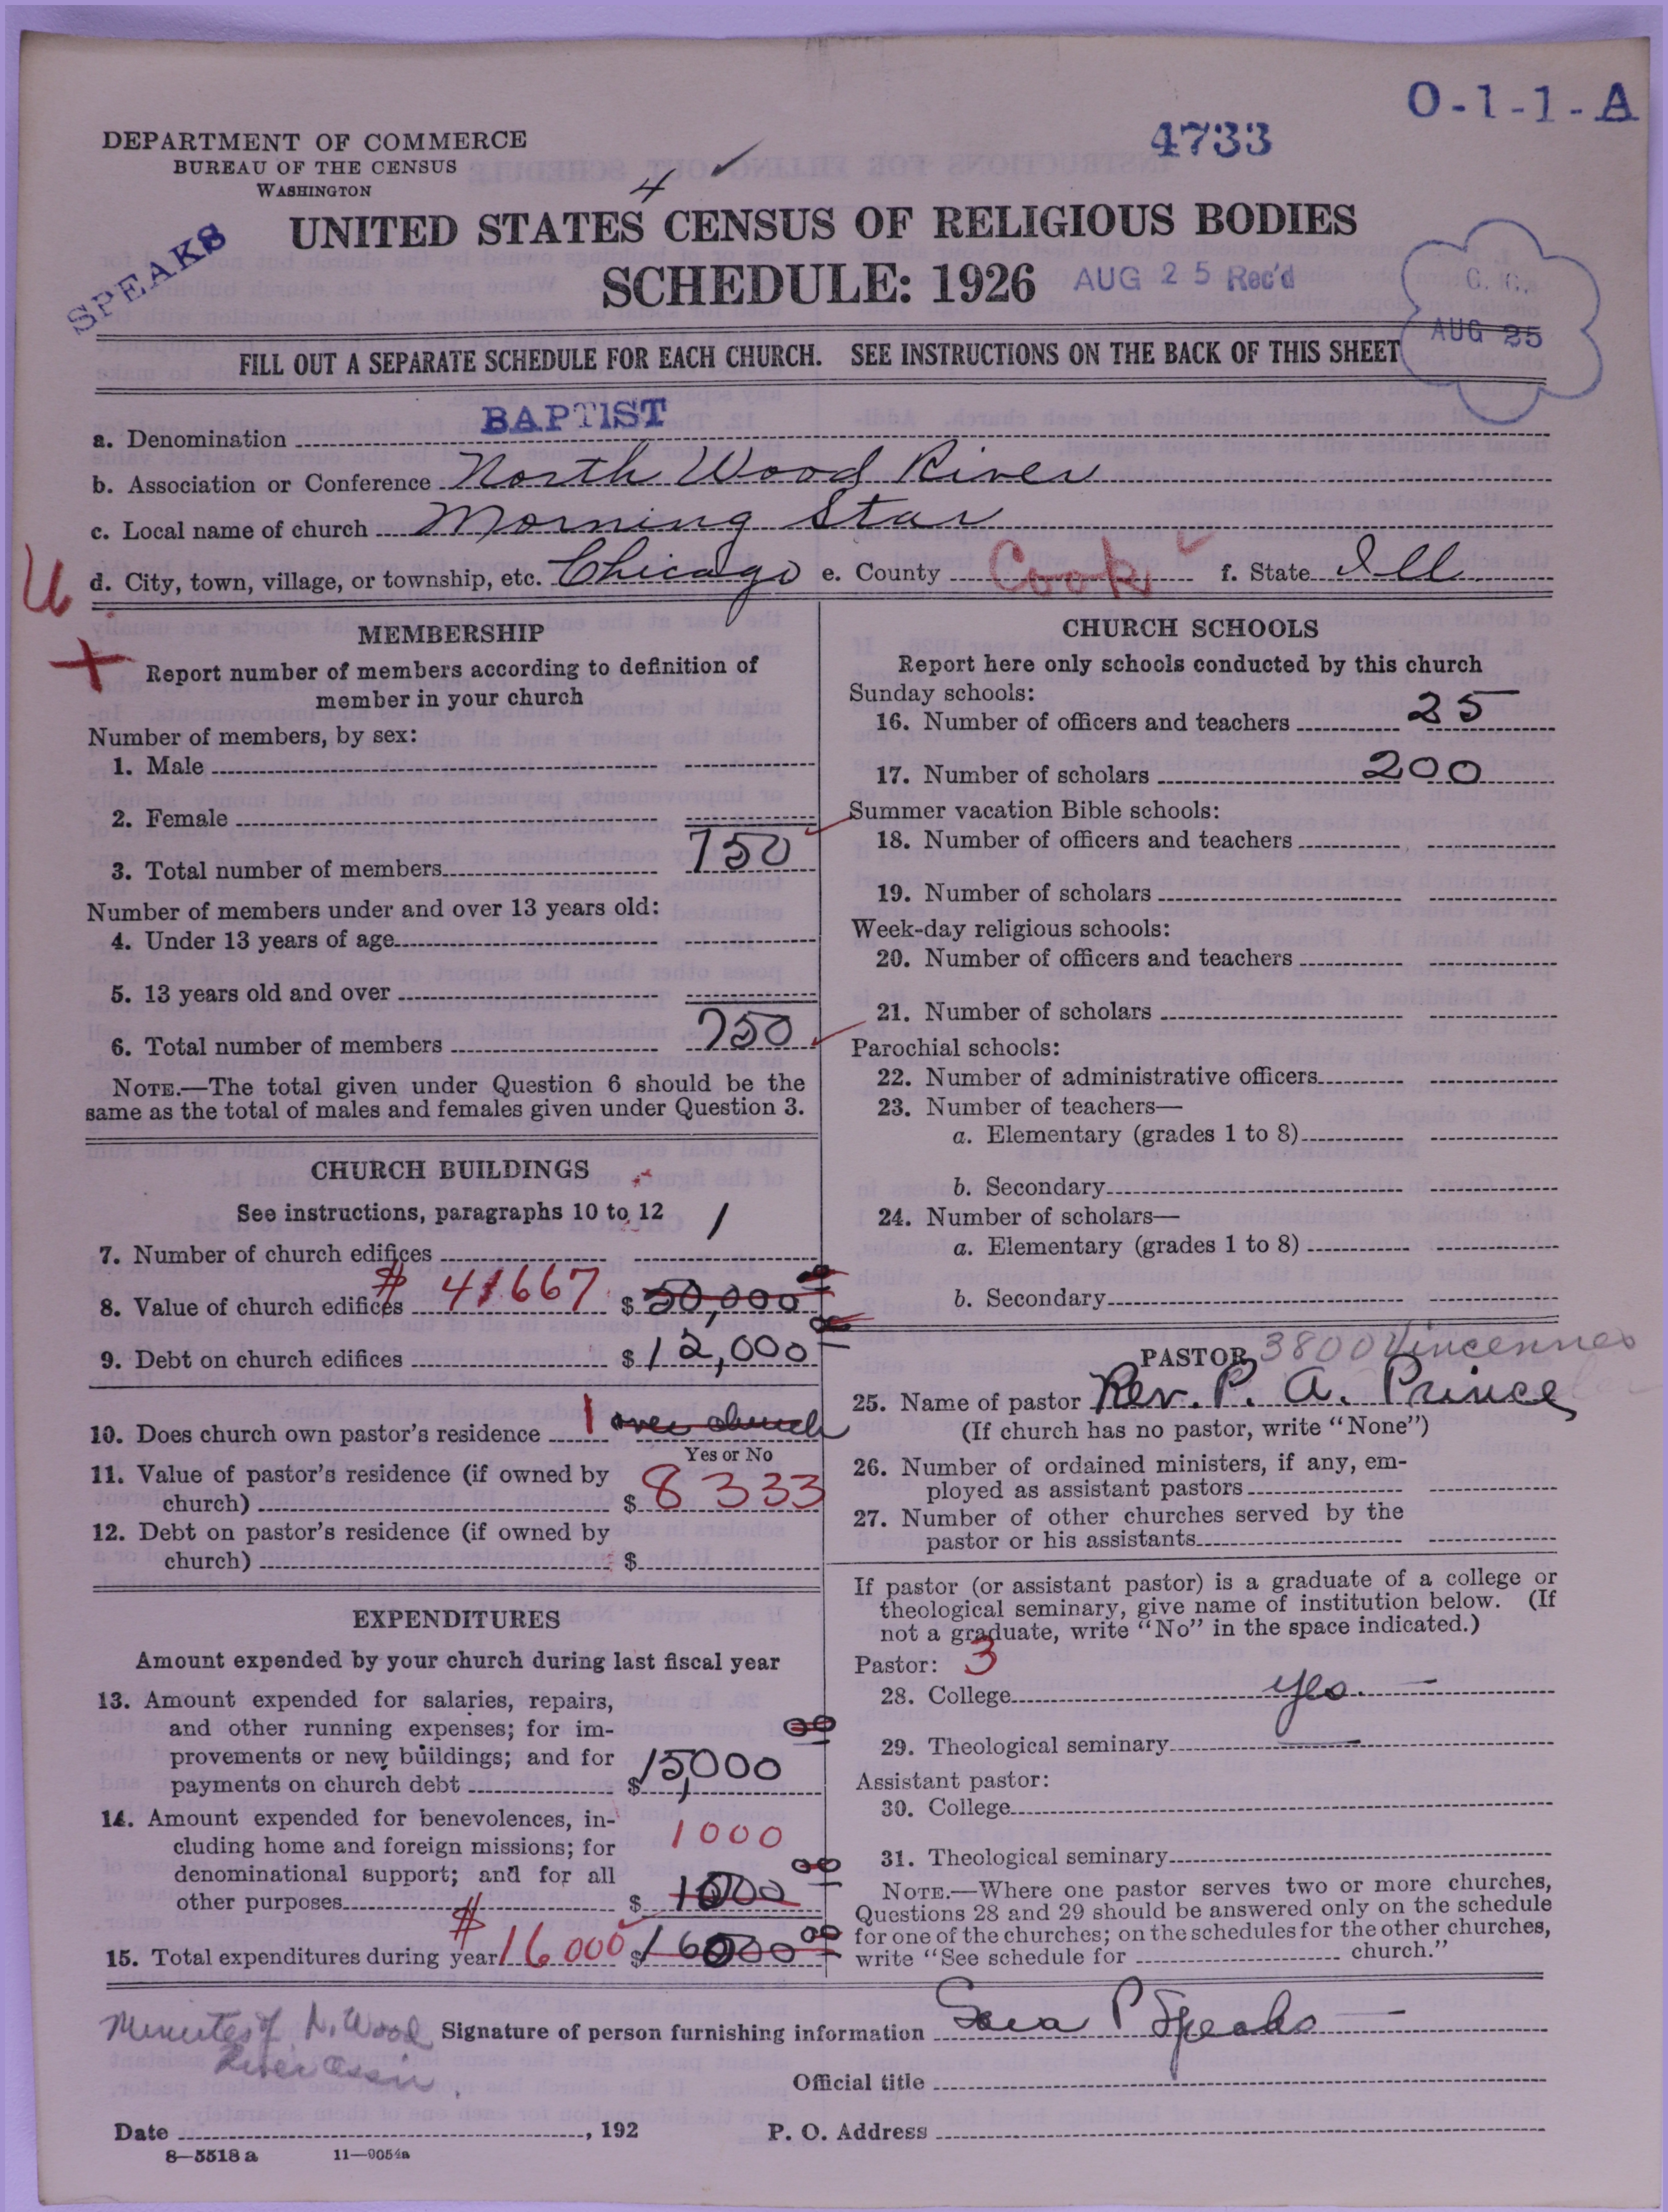 O-1-1-A
4733
DEPARTMENT OF COMMERCE
BUREAU OF THE CENSUS
WASHINGTON
4
SPEAKS
UNITED STATES CENSUS OF RELIGIOUS BODIES
SCHEDULE: 1926
AUG 25 Rec'd
AUG 25
FILL OUT A SEPARATE SCHEDULE FOR EACH CHURCH. SEE INSTRUCTIONS ON THE BACK OF THIS SHEET
a. Denomination BAPTIST
b. Association or Conference North Wood River
c. Local name of church Morning Star
d. City, town, village, or township, etc. Chicago e. County Cook f. State Ill.
MEMBERSHIP
Report number of members according to definition of
member in your church
Number of members, by sex:
1. Male
2. Female
3. Total number of members 750
Number of members under and over 13 years old:
4. Under 13 years of age
5. 13 years old and over
6. Total number of members 750
NOTE.—The total given under Question 6 should be the
same as the total of males and females given under Question 3.
CHURCH BUILDINGS
See instructions, paragraphs 10 to 12
7. Number of church edifices 1
8. Value of church edifices $ 41667 $ 50,000 00
9. Debt on church edifices $ 12,000
10. Does church own pastor's residence 1 over church
Yes or No
11. Value of pastor's residence (if owned by
church) $ 8333
12. Debt on pastor's residence (if owned by
church) $
EXPENDITURES
Amount expended by your church during last fiscal year
13. Amount expended for salaries, repairs,
and other running expenses; for im-
provements or new buildings; and for
payments on church debt $ 15,000 00
14. Amount expended for benevolences, in-
cluding home and foreign missions; for
denominational support; and for all
other purposes 1000 $ 1000 00
15. Total expenditures during year $ 16000 $ 16000 00
CHURCH SCHOOLS
Report here only schools conducted by this church
Sunday schools:
16. Number of officers and teachers 25
17. Number of scholars 200
Summer vacation Bible schools:
18. Number of officers and teachers
19. Number of scholars
Week-day religious schools:
20. Number of officers and teachers
21. Number of scholars
Parochial schools:
22. Number of administrative officers
23. Number of teachers—
a. Elementary (grades 1 to 8)
b. Secondary
24. Number of scholars—
a. Elementary (grades 1 to 8)
b. Secondary
PASTOR 3800 Vincennes
25. Name of pastor Rev. P. A. Prince
(If church has no pastor, write "None")
26. Number of ordained ministers, if any, em-
ployed as assistant pastors
27. Number of other churches served by the
pastor or his assistants
If pastor (or assistant pastor) is a graduate of a college or
theological seminary, give name of institution below. (If
not a graduate, write "No" in the space indicated.)
Pastor: 3
28. College yes.
29. Theological seminary
Assistant pastor:
30. College
31. Theological seminary
NOTE.—Where one pastor serves two or more churches,
Questions 28 and 29 should be answered only on the schedule
for one of the churches; on the schedules for the other churches,
write "See schedule for church."
Minutes of N. Wood
River Assn.
Signature of person furnishing information Sara P Speaks
Official title
Date , 192 P. O. Address
8—5518 a 11—9054a